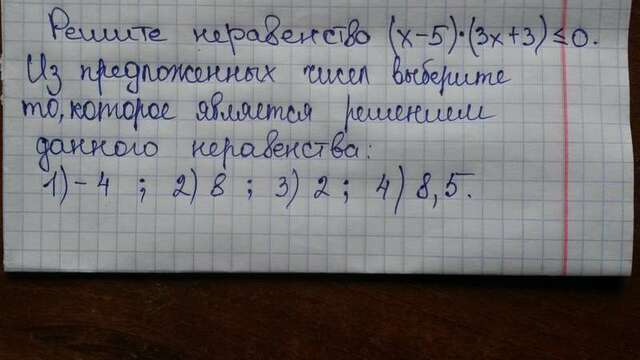 Решите неравенство (x-5)·(3x+3)≤0.
Из предложенных чисел выберите
то, которое является решением
данного неравенства:
1) -4 ; 2) 8 ; 3) 2 ; 4) 8,5.